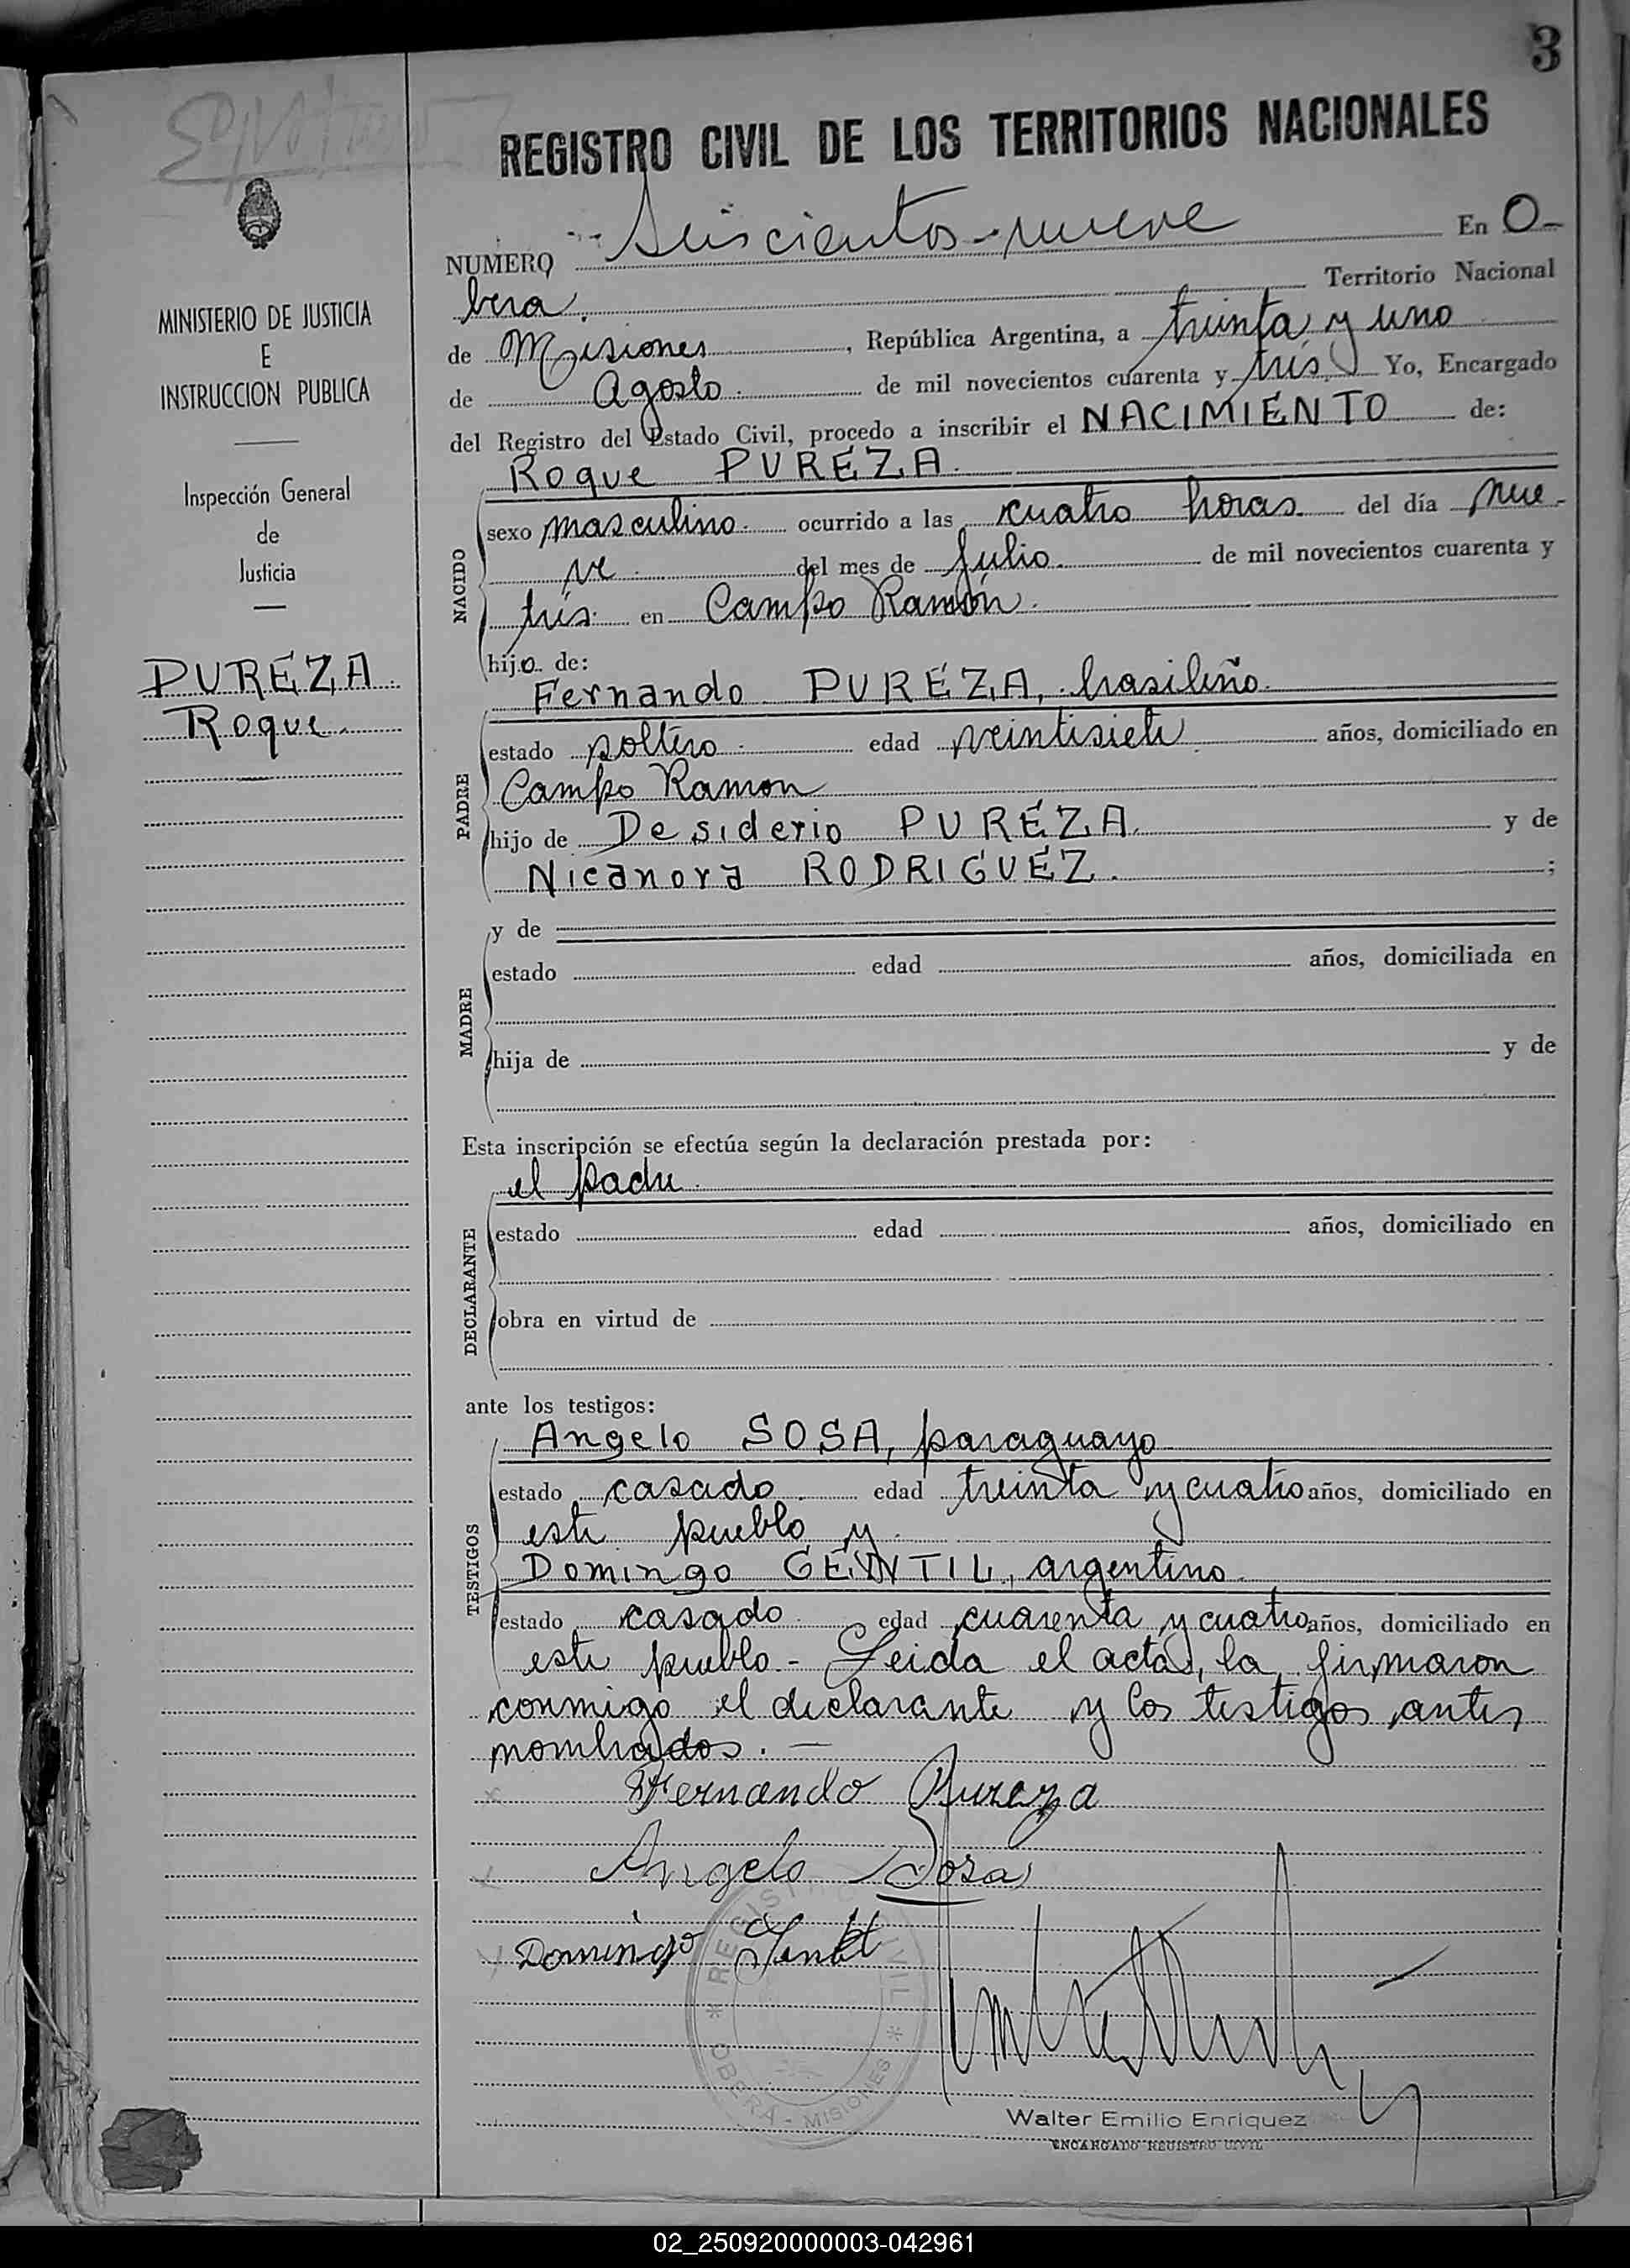 3
REGISTRO CIVIL DE LOS TERRITORIOS NACIONALES
NUMERO Seiscientos nueve En O-
bera. Territorio Nacional
de Misiones, República Argentina, a treinta y uno
de Agosto de mil novecientos cuarenta y trés. Yo, Encargado
del Registro del Estado Civil, procedo a inscribir el NACIMIENTO de:
Roque PUREZA.
NACIDO
sexo masculino ocurrido a las cuatro horas del día nue-
ve del mes de Julio de mil novecientos cuarenta y
trés en Campo Ramón.
hijo de:
Fernando PUREZA, brasileño.
PADRE
estado soltero edad veintisiete años, domiciliado en
Campo Ramon
hijo de Desiderio PUREZA. y de
Nicanora RODRIGUEZ. ;
MADRE
y de
estado edad años, domiciliada en
hija de y de
Esta inscripción se efectúa según la declaración prestada por:
el padre.
DECLARANTE
estado edad años, domiciliado en
obra en virtud de
ante los testigos:
Angelo SOSA, paraguayo
TESTIGOS
estado casado edad treinta y cuatro años, domiciliado en
este pueblo y
Domingo GENTIL, argentino.
estado casado edad cuarenta y cuatro años, domiciliado en
este pueblo.- Leida el acta, la firmaron
conmigo el declarante y los testigos antes
nombrados. —
Fernando Pureza
Angelo Sosa
Domingo
REGISTRO CIVIL * OBERA - MISIONES *
Walter Emilio Enriquez
ENCARGADO REGISTRO CIVIL
MINISTERIO DE JUSTICIA
E
INSTRUCCION PUBLICA
Inspección General
de
Justicia
PUREZA
Roque
02_250920000003-042961